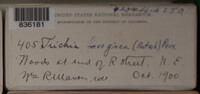 UNITED STATES NATIONAL HERBARIUM
836181
405 Trichia (Batsch) Pers.
Woods at end of R Street, N.E.
Wm R. Maxon, col. Oct. 1900